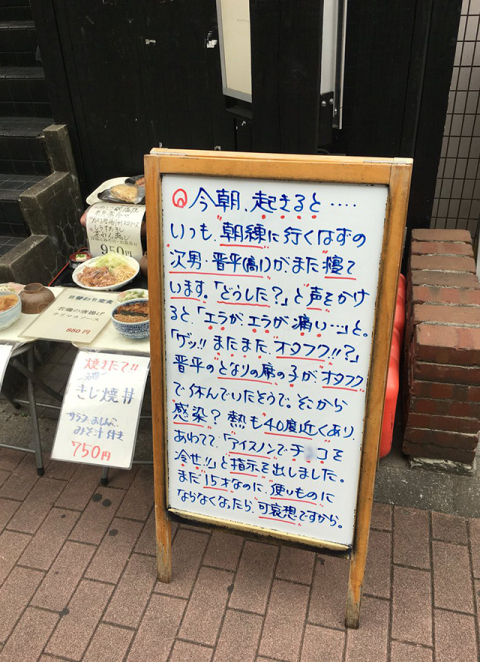 今朝、起きると‥‥
いつも、朝練に行くはずの
次男・晋平(高1)が、まだ寝て
います。「どうした?」と声をかけ
ると、「エラが、エラが痛い…」と。
「ゲッ!!またまたオタフク!!?」
晋平のとなりの席の子が、オタフク
で休んでいたそうで。そこから
感染?熱も40度近くあり、
あわてて、「アイスノンでチ コを
冷せ!!」と指示を出しました。
まだ15才なのに、使いものに
ならなくなったら、可哀想ですから。
950円
日替わり定食
880円
焼きたて!!
きじ焼丼
サラダ・おしんこ
みそ汁付き
750円